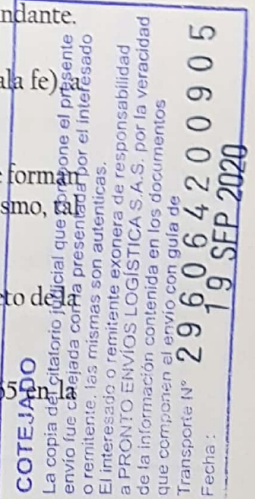 ndante.
ala fe) la
e forman
smo, tal
eto de la
65 en la
COTEJADO
La copia del citatorio judicial que compone el presente
envío fue cotejada con la presentada por el interesado
o remitente, las mismas son autenticas.
El interesado o remitente exonera de responsabilidad
a PRONTO ENVÍOS LOGÍSTICA S.A.S. por la veracidad
de la información contenida en los documentos
que componen el envío con guía de
Transporte N° 296064200905
Fecha: 19 SEP 2020